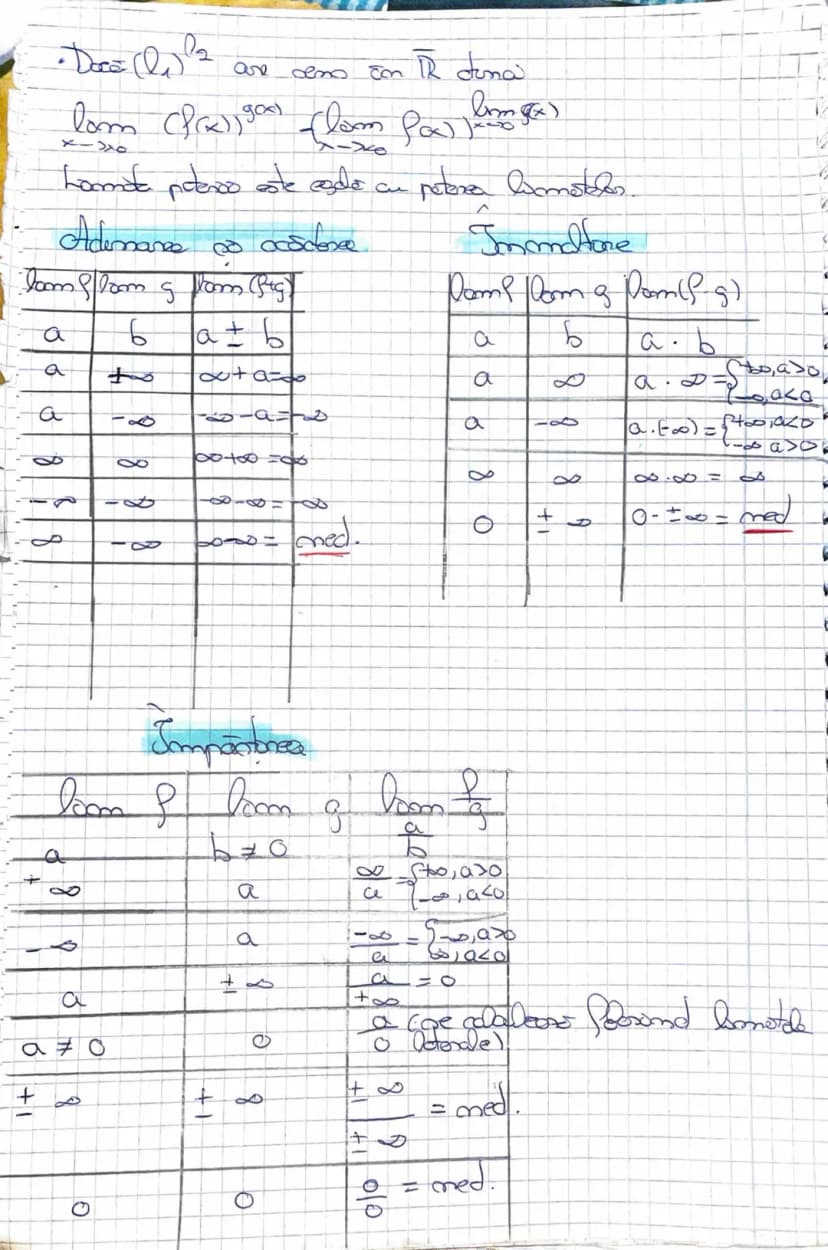 · Dacă (l₁)^l₂ are sens în R̄ atunci
lim x→x₀ (f(x))^g(x) = (lim x→x₀ f(x))^lim x→x₀ g(x)
Limita puterii este egală cu puterea limitelor.
Adunarea și scăderea
lim f | lim g | lim (f+g)
a | b | a ± b
a | +∞ | ∞ + a = ∞
a | -∞ | -∞ - a = -∞
∞ | ∞ | ∞ + ∞ = ∞
-∞ | -∞ | -∞ - ∞ = -∞
∞ | -∞ | ∞ - ∞ = ned.
Înmulțire
lim f | lim g | lim (f·g)
a | b | a · b
a | ∞ | a · ∞ = { +∞, a>0
-∞, a<0
a | -∞ | a·(-∞) = { +∞, a<0
-∞ a>0
∞ | ∞ | ∞·∞ = ∞
0 | ± ∞ | 0· ±∞ = ned
Împărțirea
lim f | lim g | lim f/g
a | b ≠ 0 | a/b
+∞ | a | ∞/a = { +∞, a>0
-∞, a<0
-∞ | a | -∞/a = { -∞, a>0
∞, a<0
a | ± ∞ | a/±∞ = 0
a ≠ 0 | 0 | a/0 (se calculează folosind limitele
laterale)
± ∞ | ± ∞ | ±∞/±∞ = ned.
0 | 0 | 0/0 = ned.